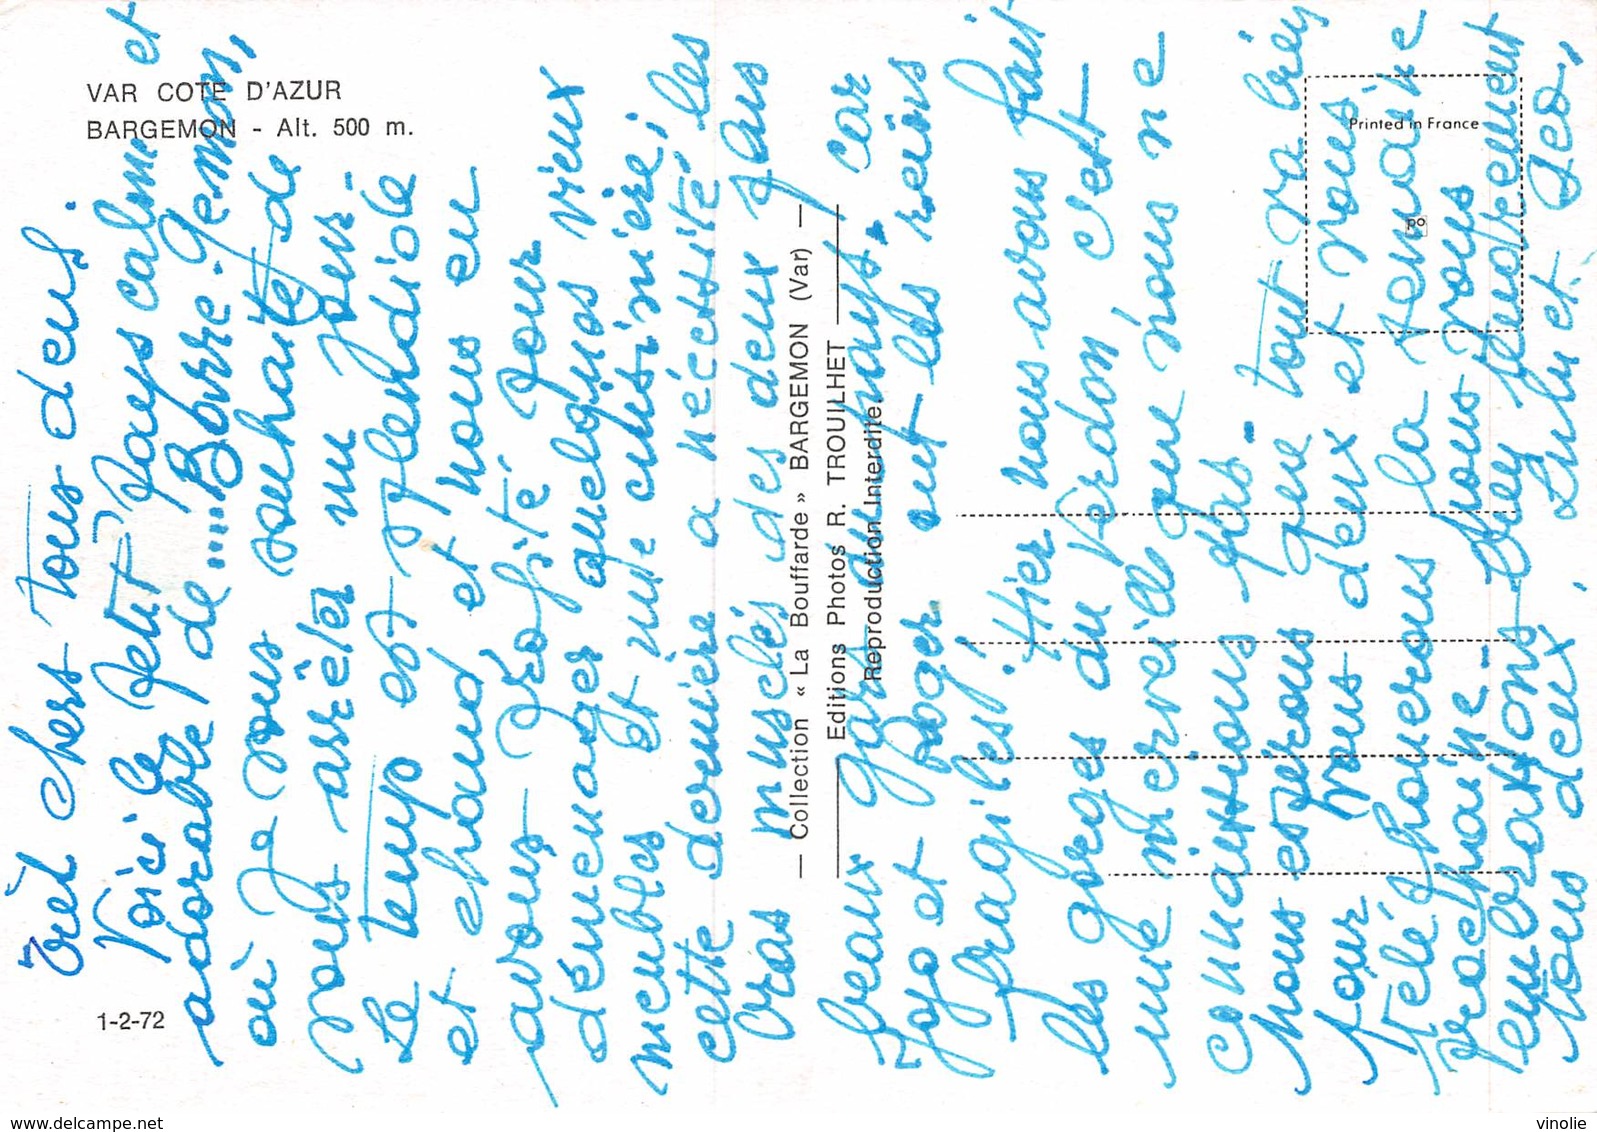 VAR COTE D'AZUR
BARGEMON - Alt. 500 m.
1-2-72
— Collection « La Bouffarde » BARGEMON (Var) —
Editions Photos R. TROUILHET
Reproduction Interdite
Printed in France
Très chers tous deux,
Voici le petit pays calme et
adorable de.... Borre-Geman,
où je vous souhaite de
vous arrêter un jour -
Le temps est splendide
et chaud et nous en
avons profité pour
déménager quelques vieux
meubles et une cuisinière;
cette dernière a nécessité les
bras musclés des deux
beaux gars du pays. car
Jojo et Roger ont les reins
fragiles! Hier nous avons fait
les gorges du Verdon c'est
une merveille que nous ne
connaissions pas -
Nous espérons que tout va bien
pour vous deux et nous
téléphonerons la semaine
prochaine - Nous vous
embrassons bien tendrement
tous deux. Lulu et Jeo,
vinolie